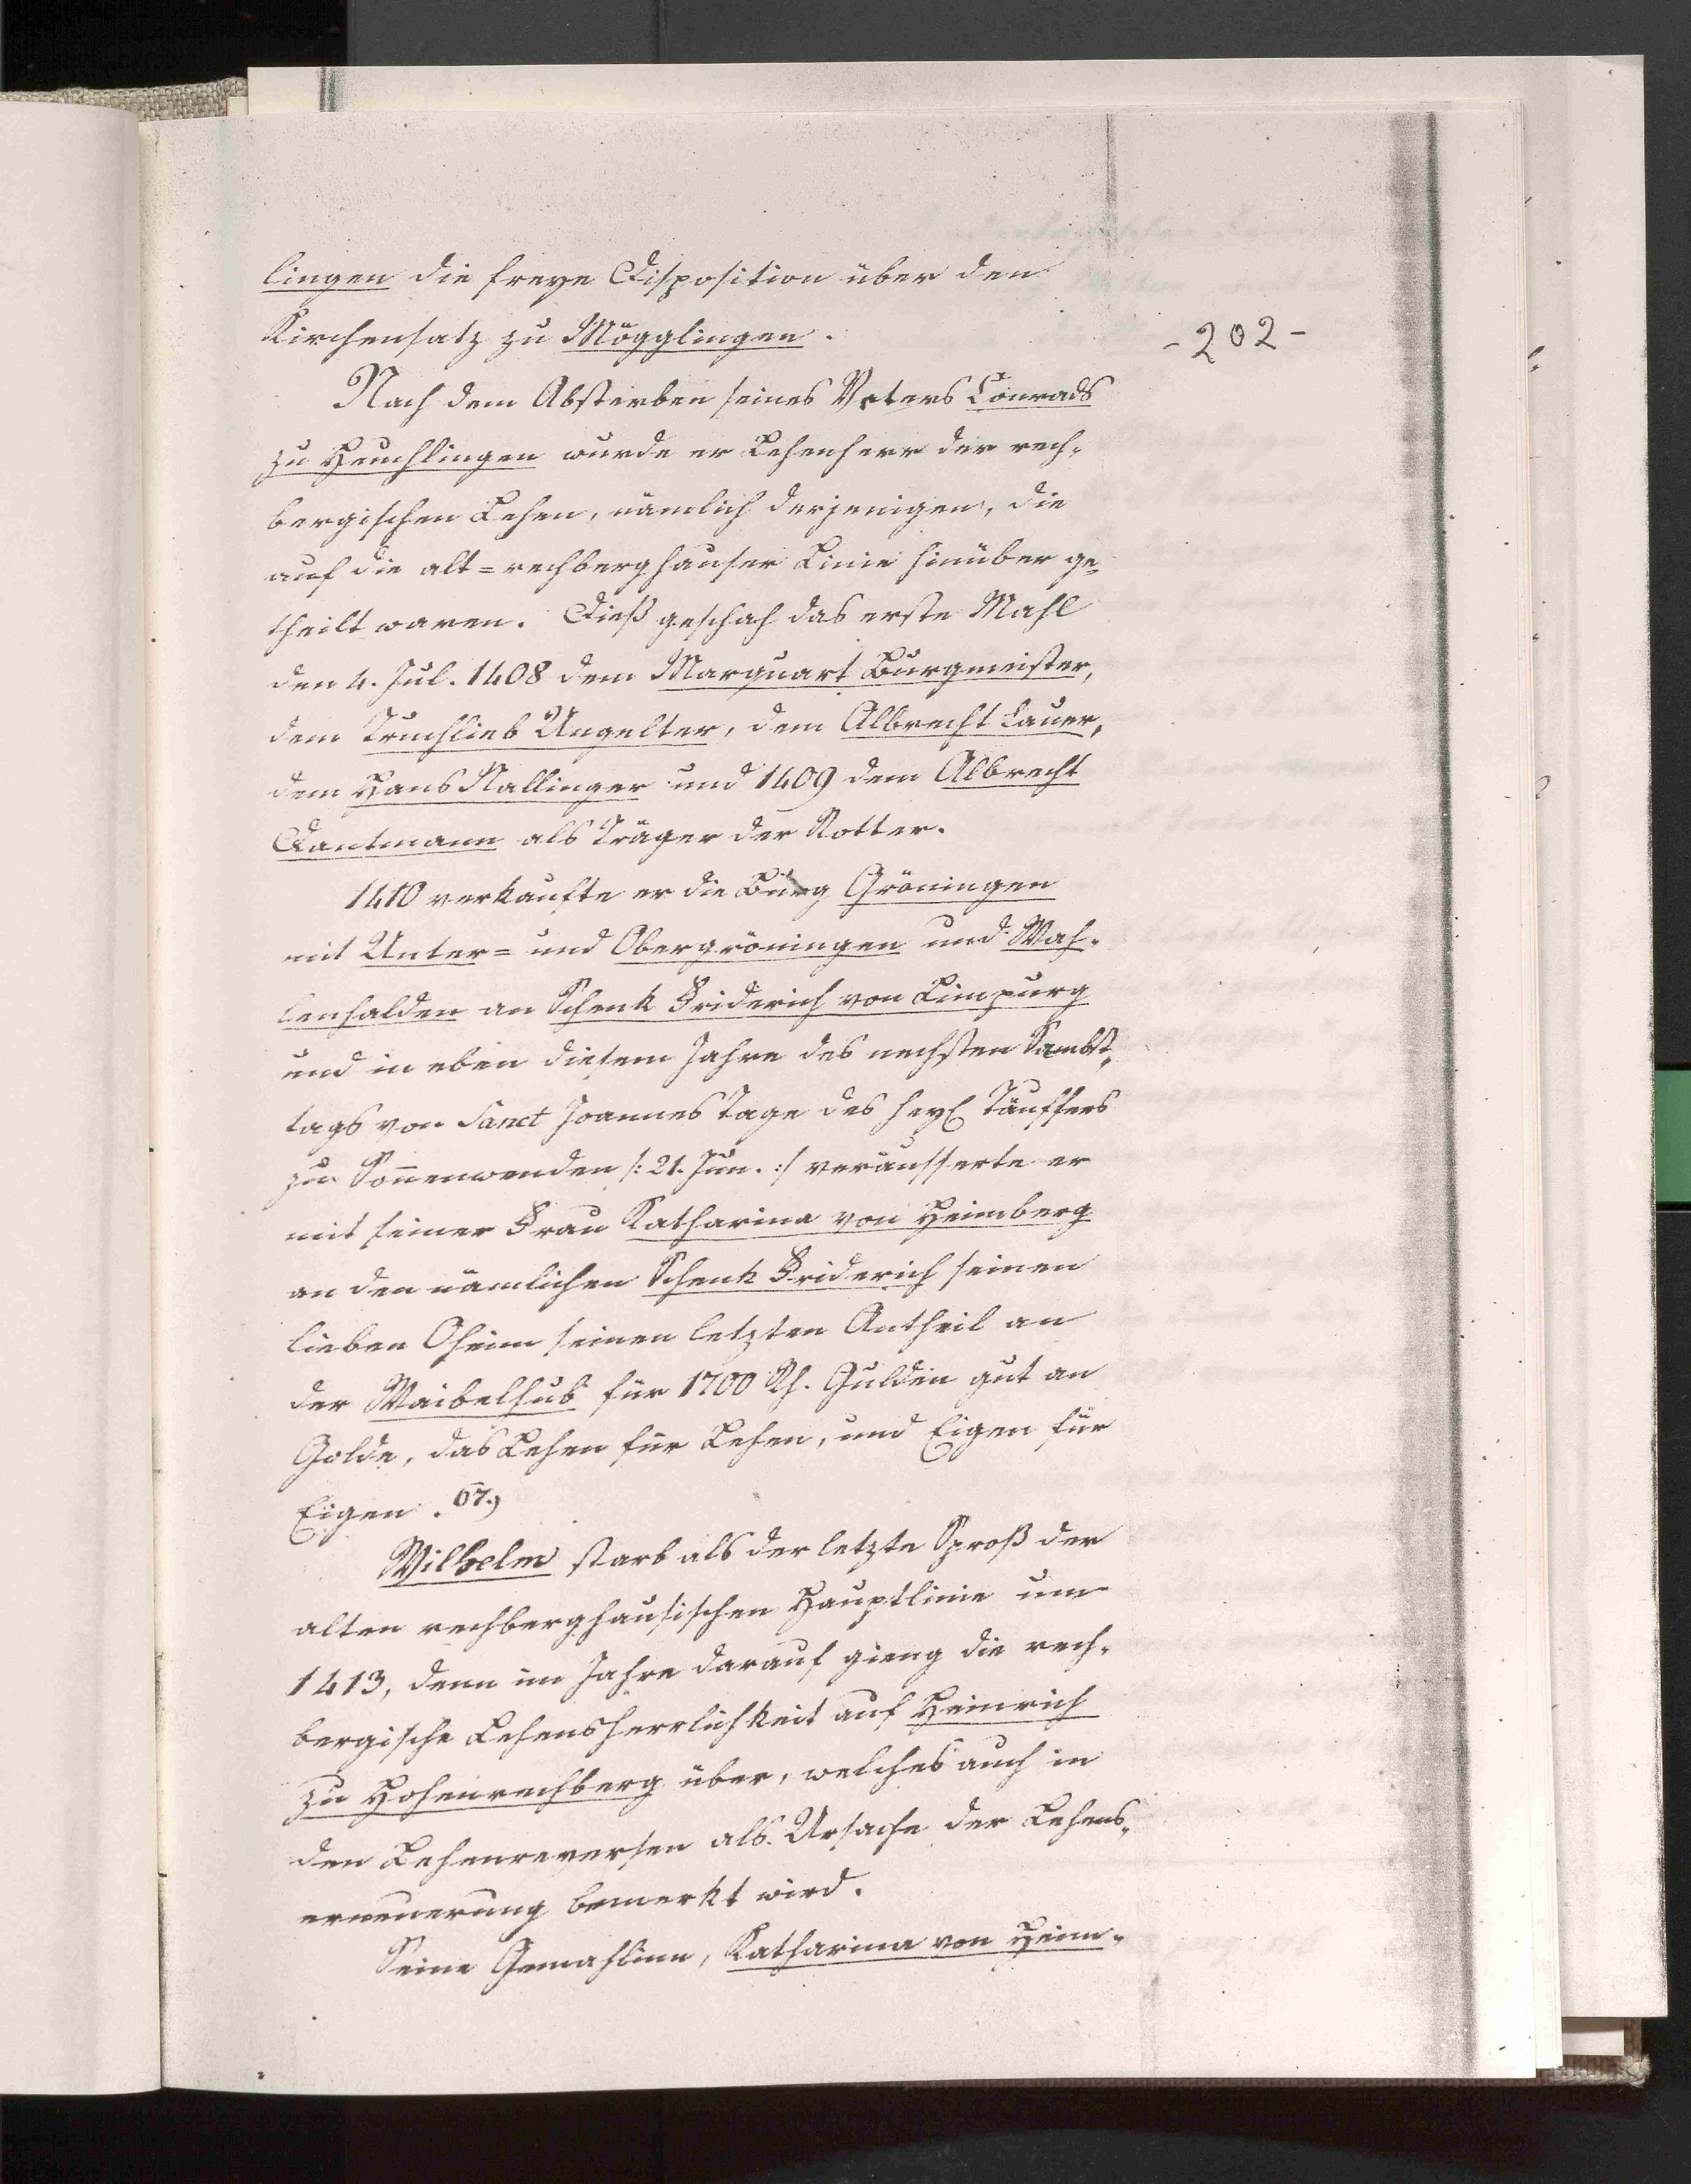 lingen die freye Disposition über den
Kirchensatz zu Mögglingen.
-202-
Nach dem Absterben seines Vaters Conrads
zu Heuchlingen wurde er Lehenherr der rech-
bergischen Lehen, nämlich derjenigen, die
auf die alt=rechberghauser Linie hinüber ge-
theilt waren. Dieß geschah das erste Mahl
den 4. Jul. 1408 dem Marquart Burgmeister,
dem Truchlieb Ungelter, dem Albrecht Lauer,
dem Hans Nallinger und 1409 dem Albrecht
Dantmann als Träger der Rotter.
1410 verkaufte er die Burg Gröningen
mit Unter= und Obergröningen und Wah-
lenhalden an Schenk Friderich von Limpurg
und in eben diesem Jahre des nechsten Sambst-
tags vor Sanct Joannes Tage des heyl Täuffers
zu Sonnenwenden /: 21. Jun. :/ veräusserte er
mit seiner Frau Katharina von Heimberg
an den nämlichen Schenk Friderich seinen
lieben Oheim seinen letzten Antheil an
der Waibelhub für 1700 Rh. Gulden gut an
Golde, das Lehen für Lehen, und Eigen für
Eigen. 67.)
Wilhelm starb als der letzte Sproß der
alten rechberghausischen Hauptlinie um
1413, denn im Jahre darauf gieng die rech-
bergische Lehensherrlichkeit auf Heinrich
zu Hohenrechberg über, welches auch in
den Lehenreversen als Ursache der Lehens-
erneuerung bemerkt wird.
Seine Gemahlinn, Katharina von Heim-